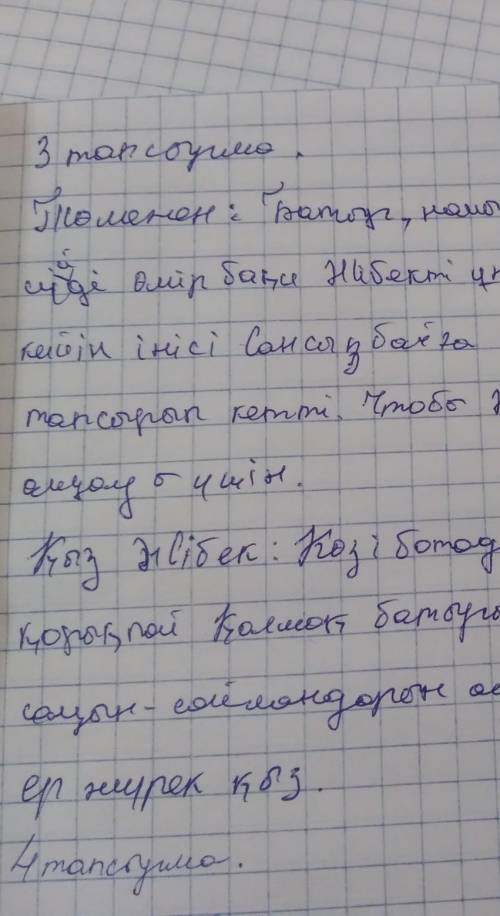 3 тапсырма.
Төлеген: Батыр,
сүйді өмір бақи Жібекті
кейін інісі Сансызбайға
тапсырып кетті. Чтобы
үшін.
Қыз Жібек: Көзі ботад
қорықпай Қалмақ батыры
сайын-саймандарын
ер жүрек қыз.
4 тапсырма.